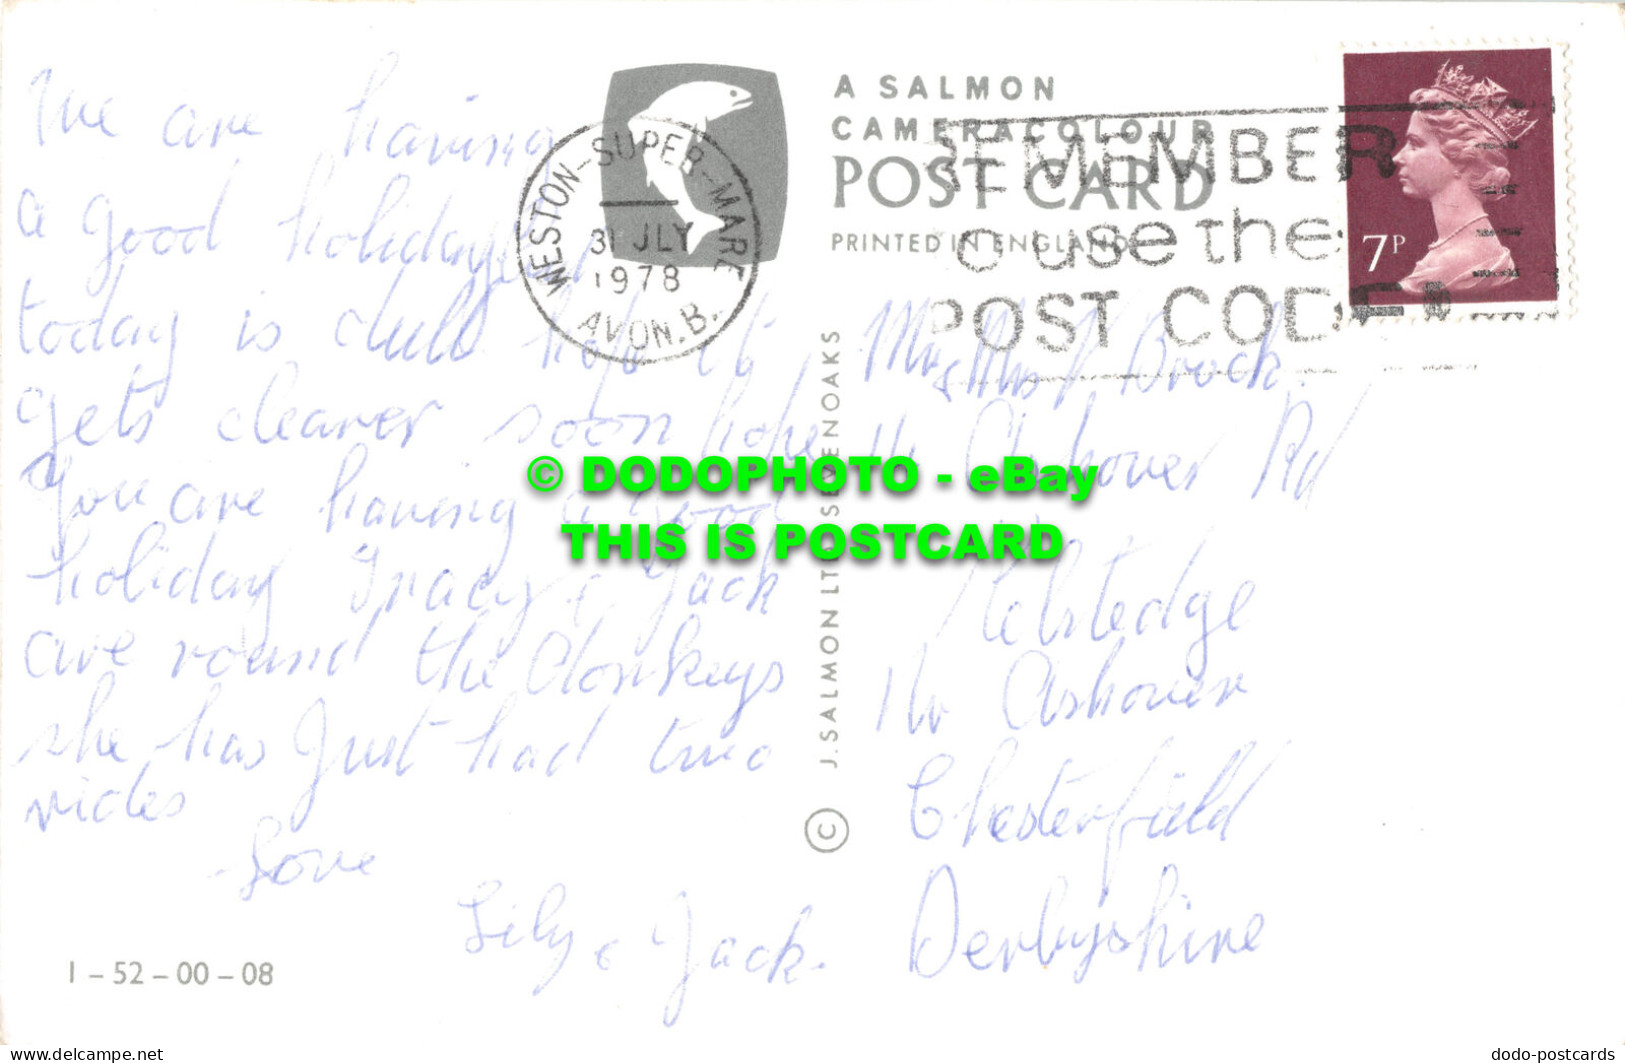 We are having
a good holiday
today is dull hope it
gets clearer soon hope
you are having a good
holiday Tracy & Jack
are round the donkeys
she has just had two
rides
Love
Lily & Jack.
I – 52 – 00 – 08
WESTON-SUPER-MARE
31 JLY
1978
AVON.B.
A SALMON
CAMERACOLOUR
POST CARD
PRINTED IN ENGLAND
REMEMBER
to use the
POST CODE
7P
© J. SALMON LTD SEVENOAKS
Mr & Mrs Brock
Ashover Rd
Kelstedge
Nr Ashover
Chesterfield
Derbyshire
© DODOPHOTO - eBay
THIS IS POSTCARD
https://www.delcampe.net
dodo-postcards